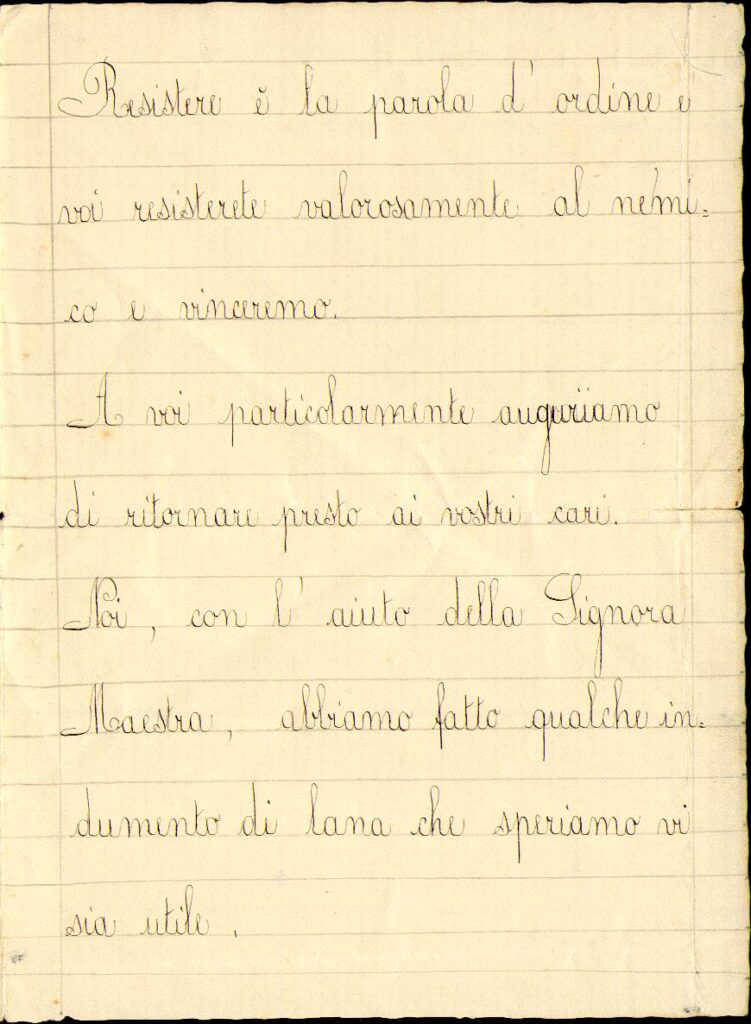 Resistere è la parola d' ordine e
voi resisterete valorosamente al nemi=
co e vinceremo.
A voi particolarmente auguriamo
di ritornare presto ai vostri cari.
Noi, con l' aiuto della Signora
Maestra, abbiamo fatto qualche in=
dumento di lana che speriamo vi
sia utile.